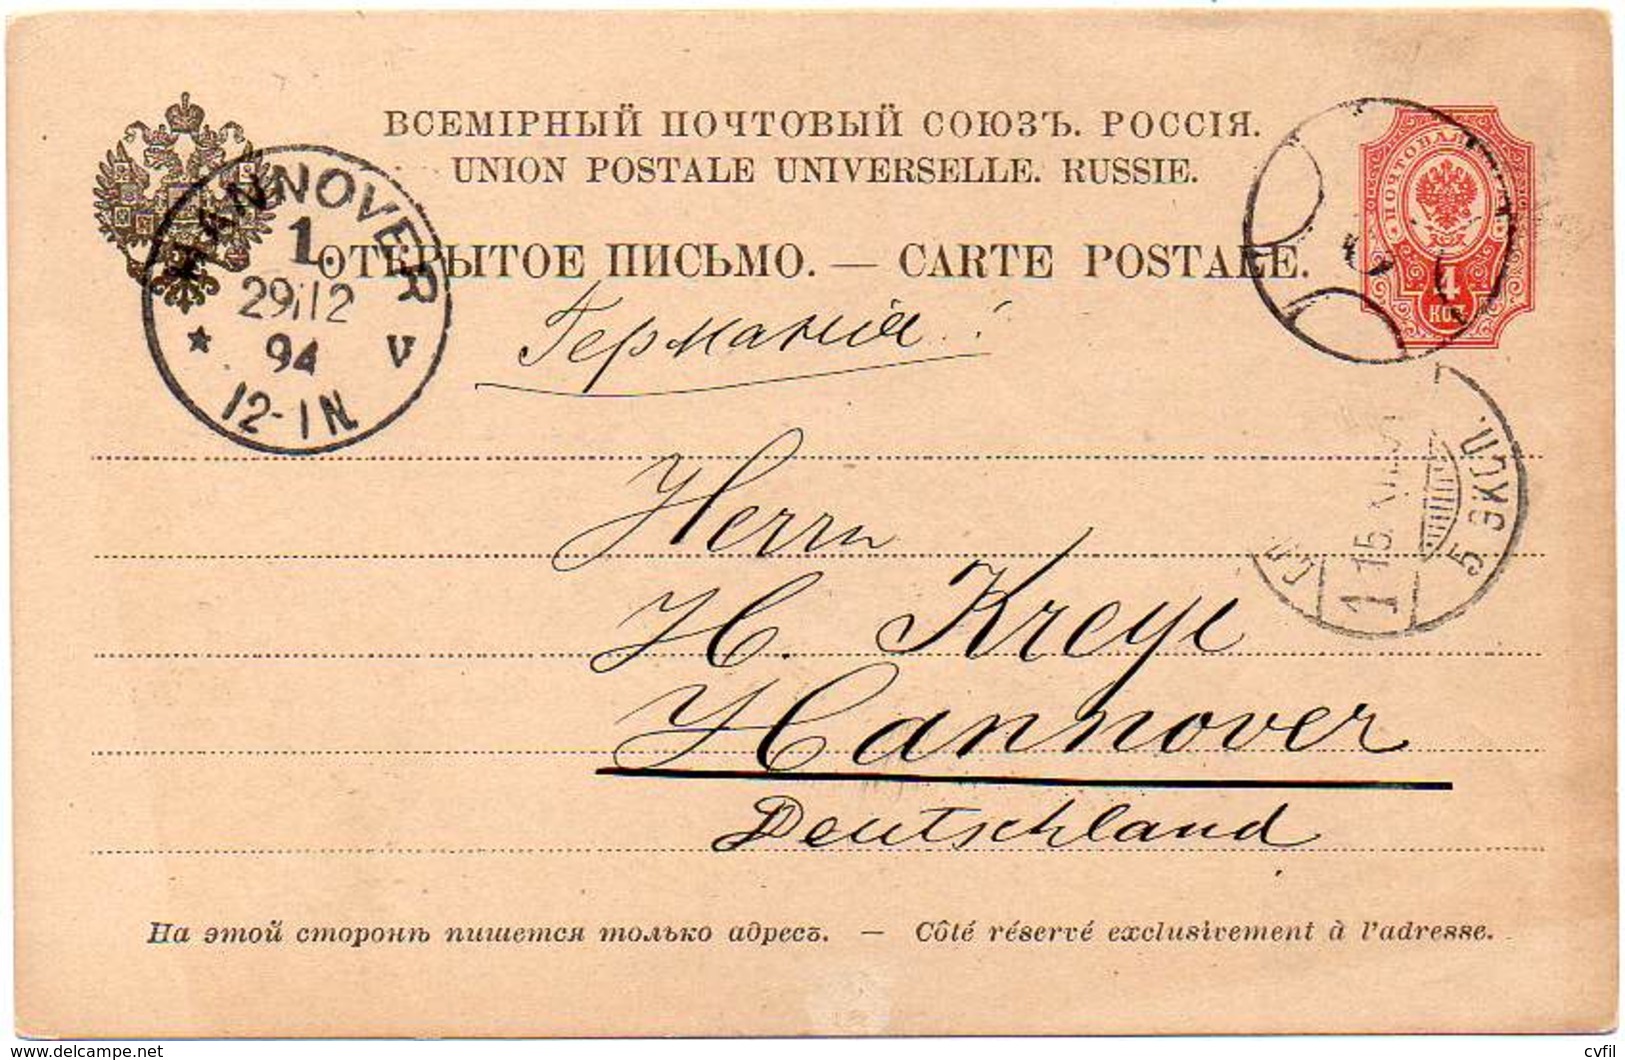 ВСЕМІРНЫЙ ПОЧТОВЫЙ СОЮЗЪ. РОССІЯ.
UNION POSTALE UNIVERSELLE. RUSSIE.
ОТКРЫТОЕ ПИСЬМО. — CARTE POSTALE.
HANNOVER
1.
29/12
94
* V
12-1N.
4
КОП
Германія
Herrn
H. Kreye
Hannover
Deutschland
5 ЭКСП.
1
На этой сторонѣ пишется только адресъ. — Côté réservé exclusivement à l'adresse.
www.delcampe.net
cvfil